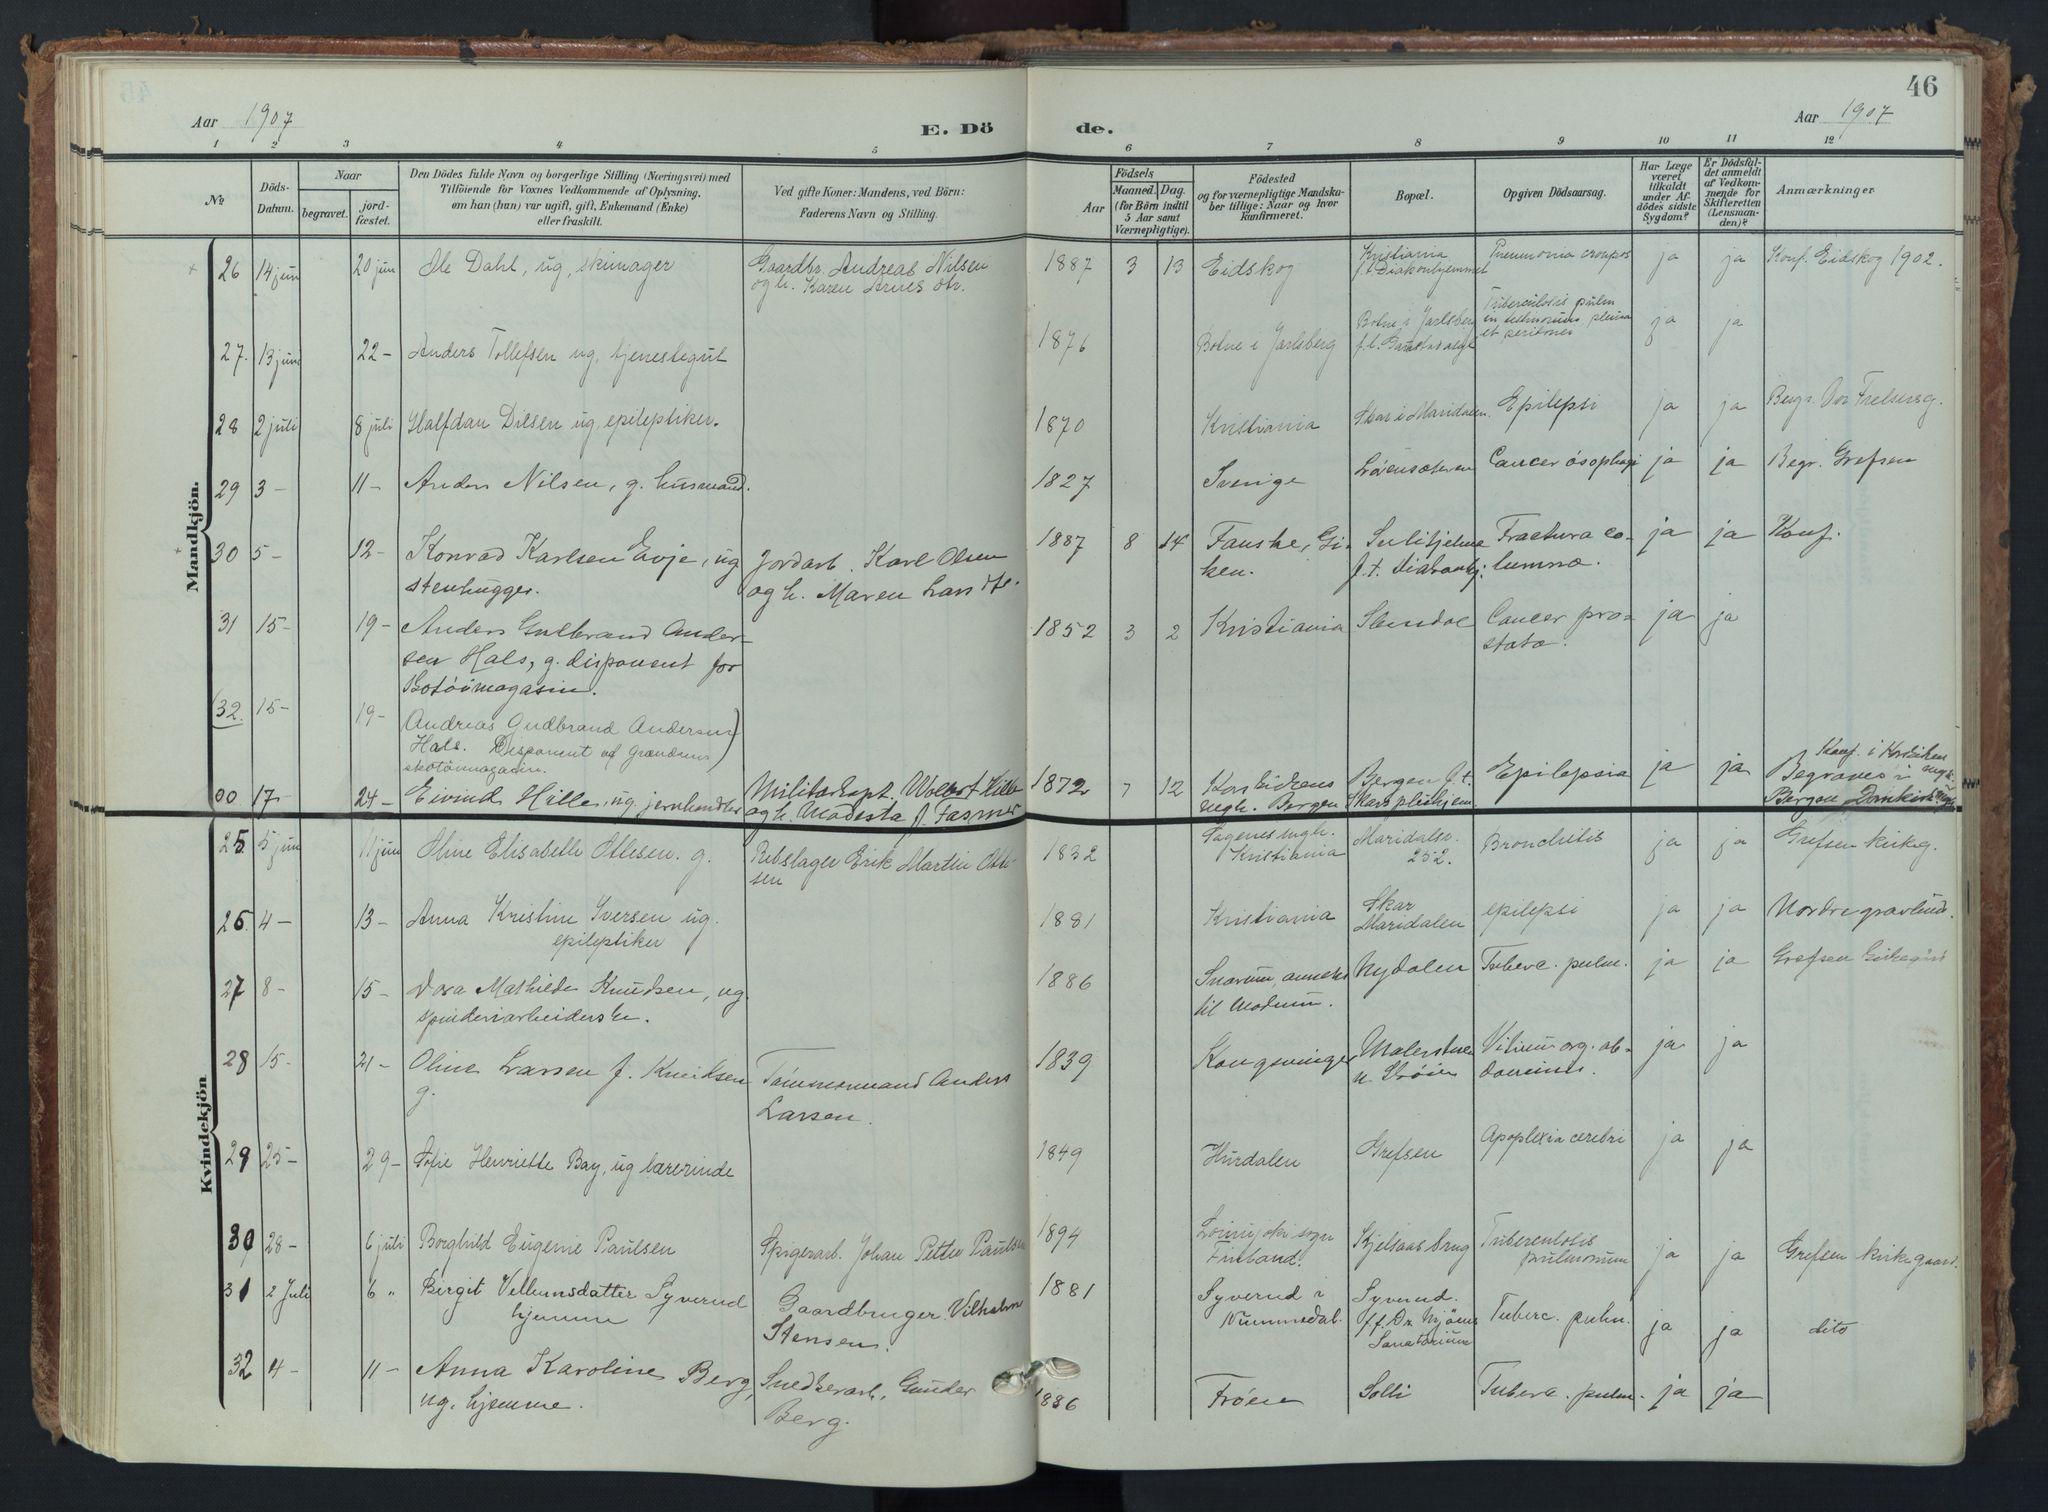 46
Aar 1907
E. Dö
de.
Aar 1907
1 2 3 4 5 6 7 8 9 10 11 12
№
Döds-
Datum.
Naar
begravet.
jord-
fæstet.
Den Dödes fulde Navn og borgerlige Stilling (Næringsvei) med
Tilföiende for Voxnes Vedkommende af Oplysning,
om han (hun) var ugift, gift, Enkemand (Enke)
eller fraskilt.
Ved gifte Koner: Mandens, ved Börn:
Faderens Navn og Stilling.
Födsels
Aar
Maaned.
Dag.
(for Börn indtil
5 Aar samt
Værnepligtige).
Födested
og for værnepligtige Mandska-
ber tillige: Naar og hvor
konfirmeret.
Bopæl.
Opgiven Dödsaarsag.
Har Læge
været
tilkaldt
under Af-
dödes sidste
Sygdom?
Er Dödsfal-
det anmeldt
af Vedkom-
mende for
Skifteretten
(Lensman-
den)?
Anmærkninger
Mandkjön.
26 14 juni 20 juni Ole Dahl, ug, skimager Gaardbr. Andreas Nilsen 1887 3 13 Eidskog Kristiania Pneumonia croupos ja ja Konf. Eidskog 1902.
og h. Karen Arnes dtr. f.t. Diakonhjemmet
27. 13 juni 22- Anders Tollefsen ug, tjenestegut 1876 Botne i Jarlsberg Botne i Jarlsberg Tuberculosis pulm ja ja
et peritonei
28 2 juli 8 juli Halfdan Olsen ug. epileptiker. 1870 Kristiania Skar i Maridalen. Epilepsi ja ja Begr. Vor Frelsersg.
29 3- 11- Anders Nilsen, g. husmand. 1827 Sverige Cancer øsophagi ja ja Begr. Grefsen
30 5- 12- Konrad Karlsen Evje, ug Jordarb. Karl Olsen 1887 8 14 Fauske, Gi- Sulitjelma Fractura co- ja ja Konf.
stenhugger. og h. Maren Lars dtr. ken. f.t. Diakonhj: lumnæ.
31 15- 19- Anders Gulbrand Ander- 1852 3 2 Kristiania Cancer pro- ja ja
sen Hals, g. disponent for statæ.
skotöimagasin.
(32. 15- 19- Andreas Gudbrand Andersen)
Hals. Disponent ved Grændsens
skotöimagasin.
00 17- 24- Eivind Hille, ug. jernhandler Militærkapt. Wollert Hille 1872 7 12 Korskirkens Bergen f.t. Epilepsia ja ja Konf. i Korskirken
og h. Modesta f. Fasmer mgh. Bergen Skars pleiehjem Begraves i
Bergen Domkirkes
Kvindekjön
25. 5 juni 11 juni Oline Elisabeth Ottesen. g. Rebslager Erik Martin Otte- 1832 Sagenes mgh. Maridalsv. Bronchitis ja ja Grefsen kirkeg.
sen Kristiania 252.
26. 4- 13- Anna Kristine Iversen ug. 1881 Kristiania Skar epilepsi ja ja Nordre gravlund.
epileptiker Maridalen
27 8- 15- Dora Mathilde Knudsen, ug. 1886 Snarum, anneks Nydalen Tuberc. pulm. ja ja Grefsen
spinderiarbeiderske. til Modum.
28 15- 21- Oline Larsen f. Knudsen Tömmermand Anders 1839 Kongsvinger Vitium org. ja ja
g. Larsen.
29 25- 29- Sofie Henriette Bay, ug lærerinde 1849 Hurdalen Grefsen Apoplexia cerebri ja ja
30 28- 6 juli Borghild Eugenie Paulsen Spigerarb. Johan Petter Paulsen 1894 Kjelsaas brug Tuberculosis ja ja Grefsen kirkegaard.
Finland. pulmonum
31 2 Juli 6 " Birgit Vellumsdatter Syverud Gaardbruger Vilhelm 1881 Syverud i Syverud. Tuberc. pulm. ja ja dito
hjemme Stensen. Nummedal. Sanatorium
32 4- 11- Anna Karoline Berg, Snedkerarb. Gunder 1886 Frøen Solli Tuberc. pulm. ja ja
ug. hjemme. Berg.